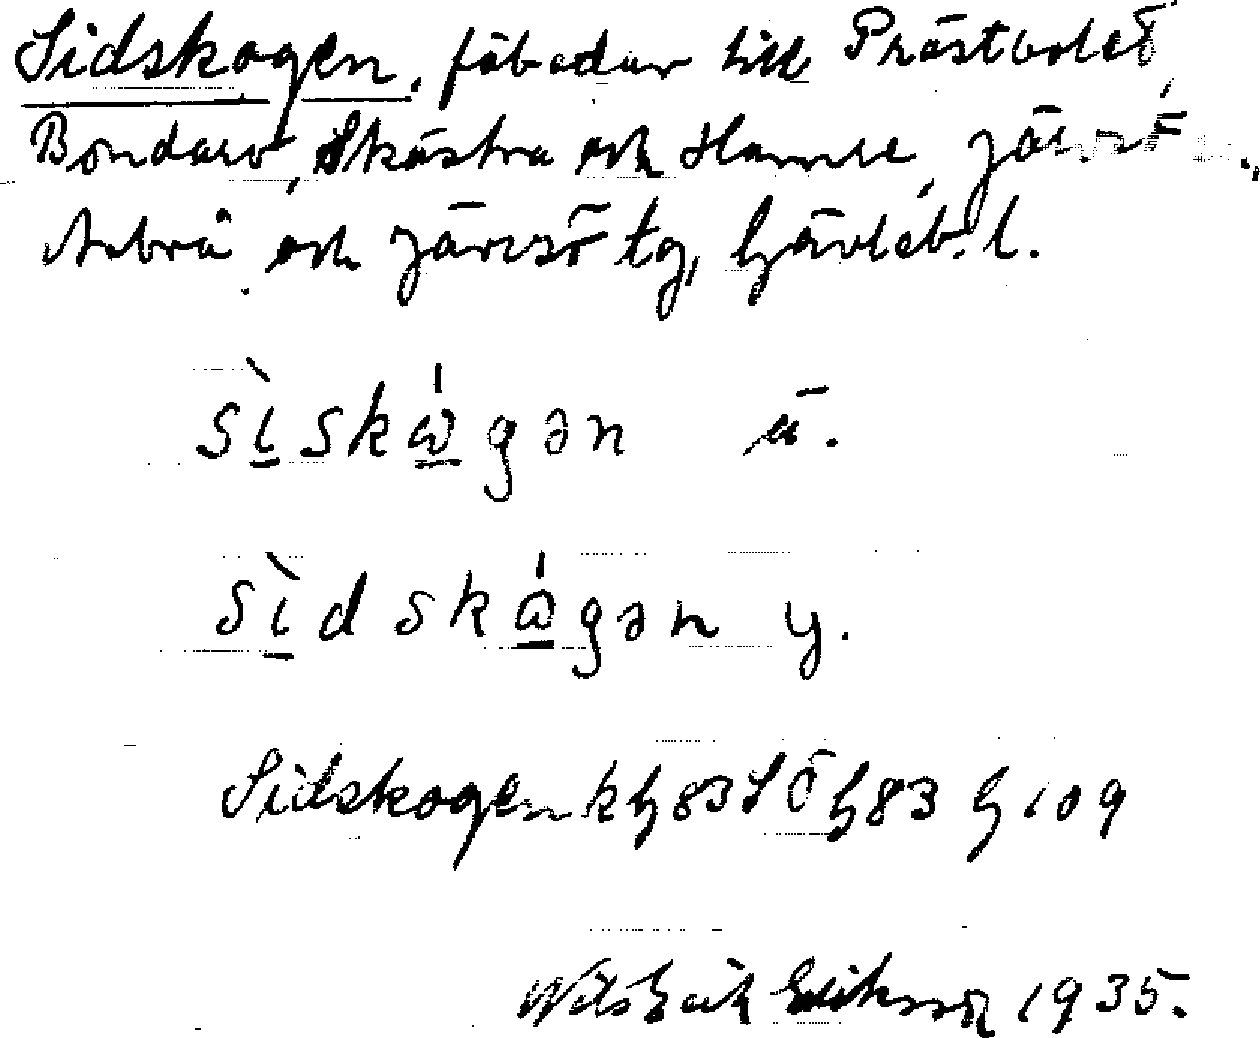 Sidskogen, fäbodar till Prästbolet,
Bondarv, Skästra och Hamre, Järvsö
Arbrå och Järvsö tg, Gävleb. l.
sìskǻgən ä.
sìdskǻgən y.
Sidskogen k G 83 SÖ G 83 G 109
Nils Erik Eriksson 1935.